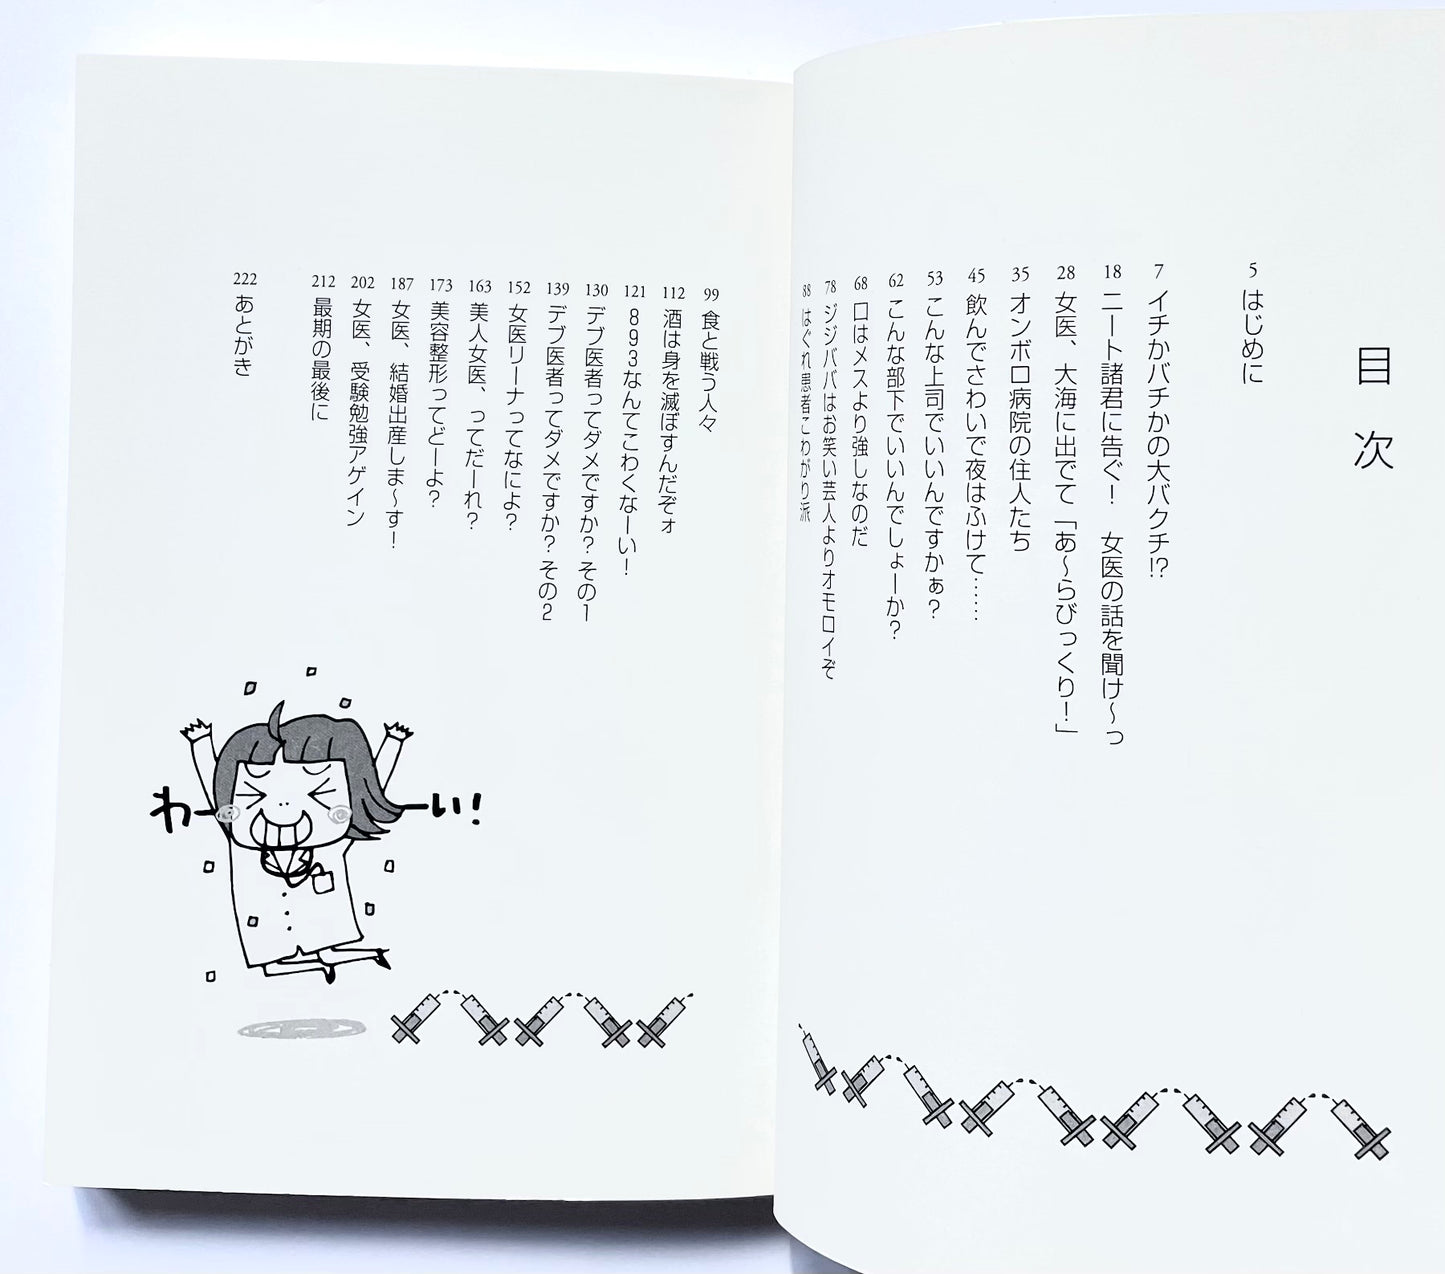 目次
5 はじめに
7 イチかバチかの大バクチ!?
18 ニート諸君に告ぐ！　女医の話を聞け〜っ
28 女医、大海に出でて「あ〜らびっくり！」
35 オンボロ病院の住人たち
45 飲んでさわいで夜はふけて……
53 こんな上司でいいんですかぁ？
62 こんな部下でいいんでしょーか？
68 口はメスより強しなのだ
78 ジジババはお笑い芸人よりオモロイぞ
88 はぐれ患者こわがり派
99 食と戦う人々
112 酒は身を滅ぼすんだぞォ
121 893なんてこわくなーい！
130 デブ医者ってダメですか？その1
139 デブ医者ってダメですか？その2
152 女医リーナってなによ？
163 美人女医、ってだーれ？
173 美容整形ってどーよ？
187 女医、結婚出産しま〜す！
202 女医、受験勉強アゲイン
212 最期の最後に
222 あとがき
わーい！